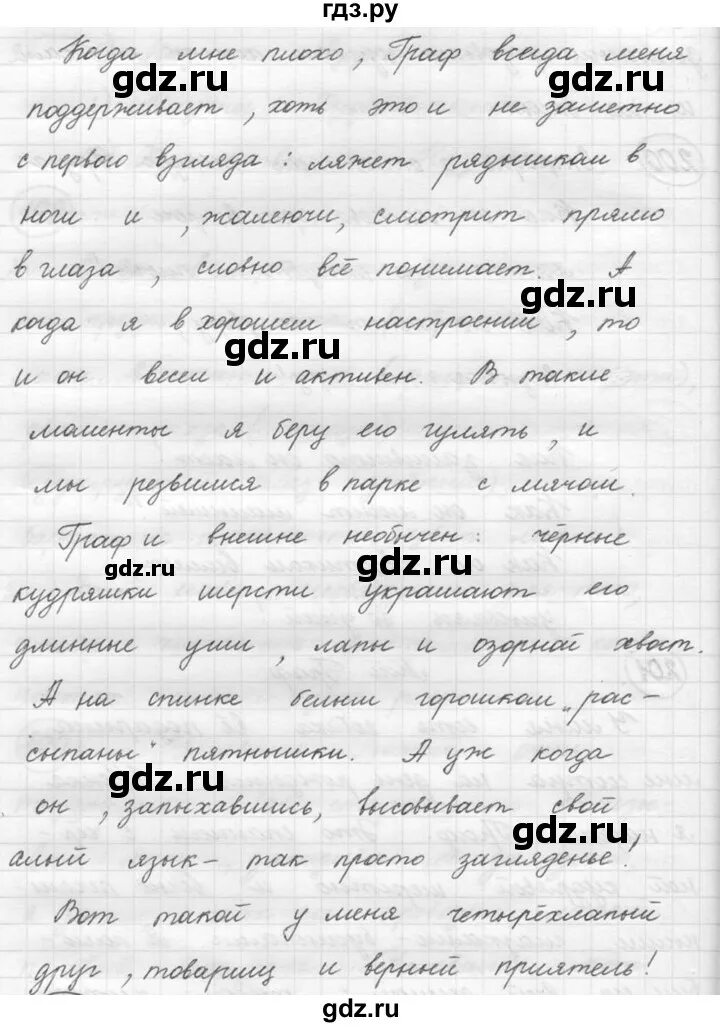 гдз.ру
Когда мне плохо, Граф всегда меня
gdz.ru gdz.ru
поддерживает, хоть это и не заметно
с первого взгляда: ляжет рядышком в
ноги и, жалеючи, смотрит прямо
gdz.ru
в глаза, словно всё понимает. А
gdz.ru
когда я в хорошем настроении, то
gdz.ru
и он весел и активен. В такие
моменты я беру его гулять, и
gdz.ru
мы резвимся в парке с мячом.
Граф и внешне необычен: чёрные
gdz.ru gdz.ru
кудряшки шерсти украшают его
длинные уши, лапы и озорной хвост.
gdz.ru
А на спинке белым горошком „рас-
сыпаны“ пятнышки. А уж когда
gdz.ru
он, запыхавшись, высовывает свой
gdz.ru
алый язык – так просто загляденье!
Вот такой у меня четырёхлапый
gdz.ru
друг, товарищ и верный приятель!
gdz.ru